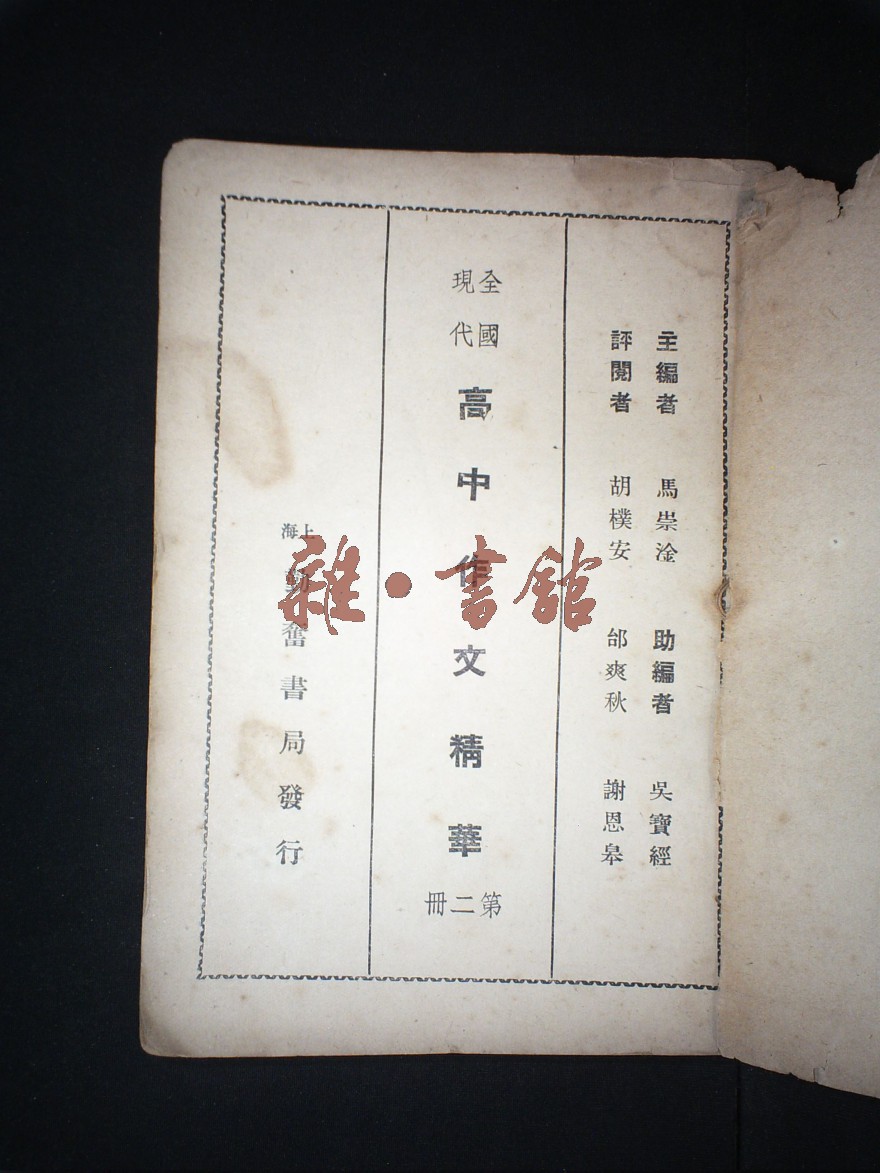 主編者 馬崇淦 助編者 吳寶經
評閱者 胡樸安 邰爽秋 謝恩皋
全國
現代
高中作文精華
第二冊
上海
勤奮書局發行
雜·書館